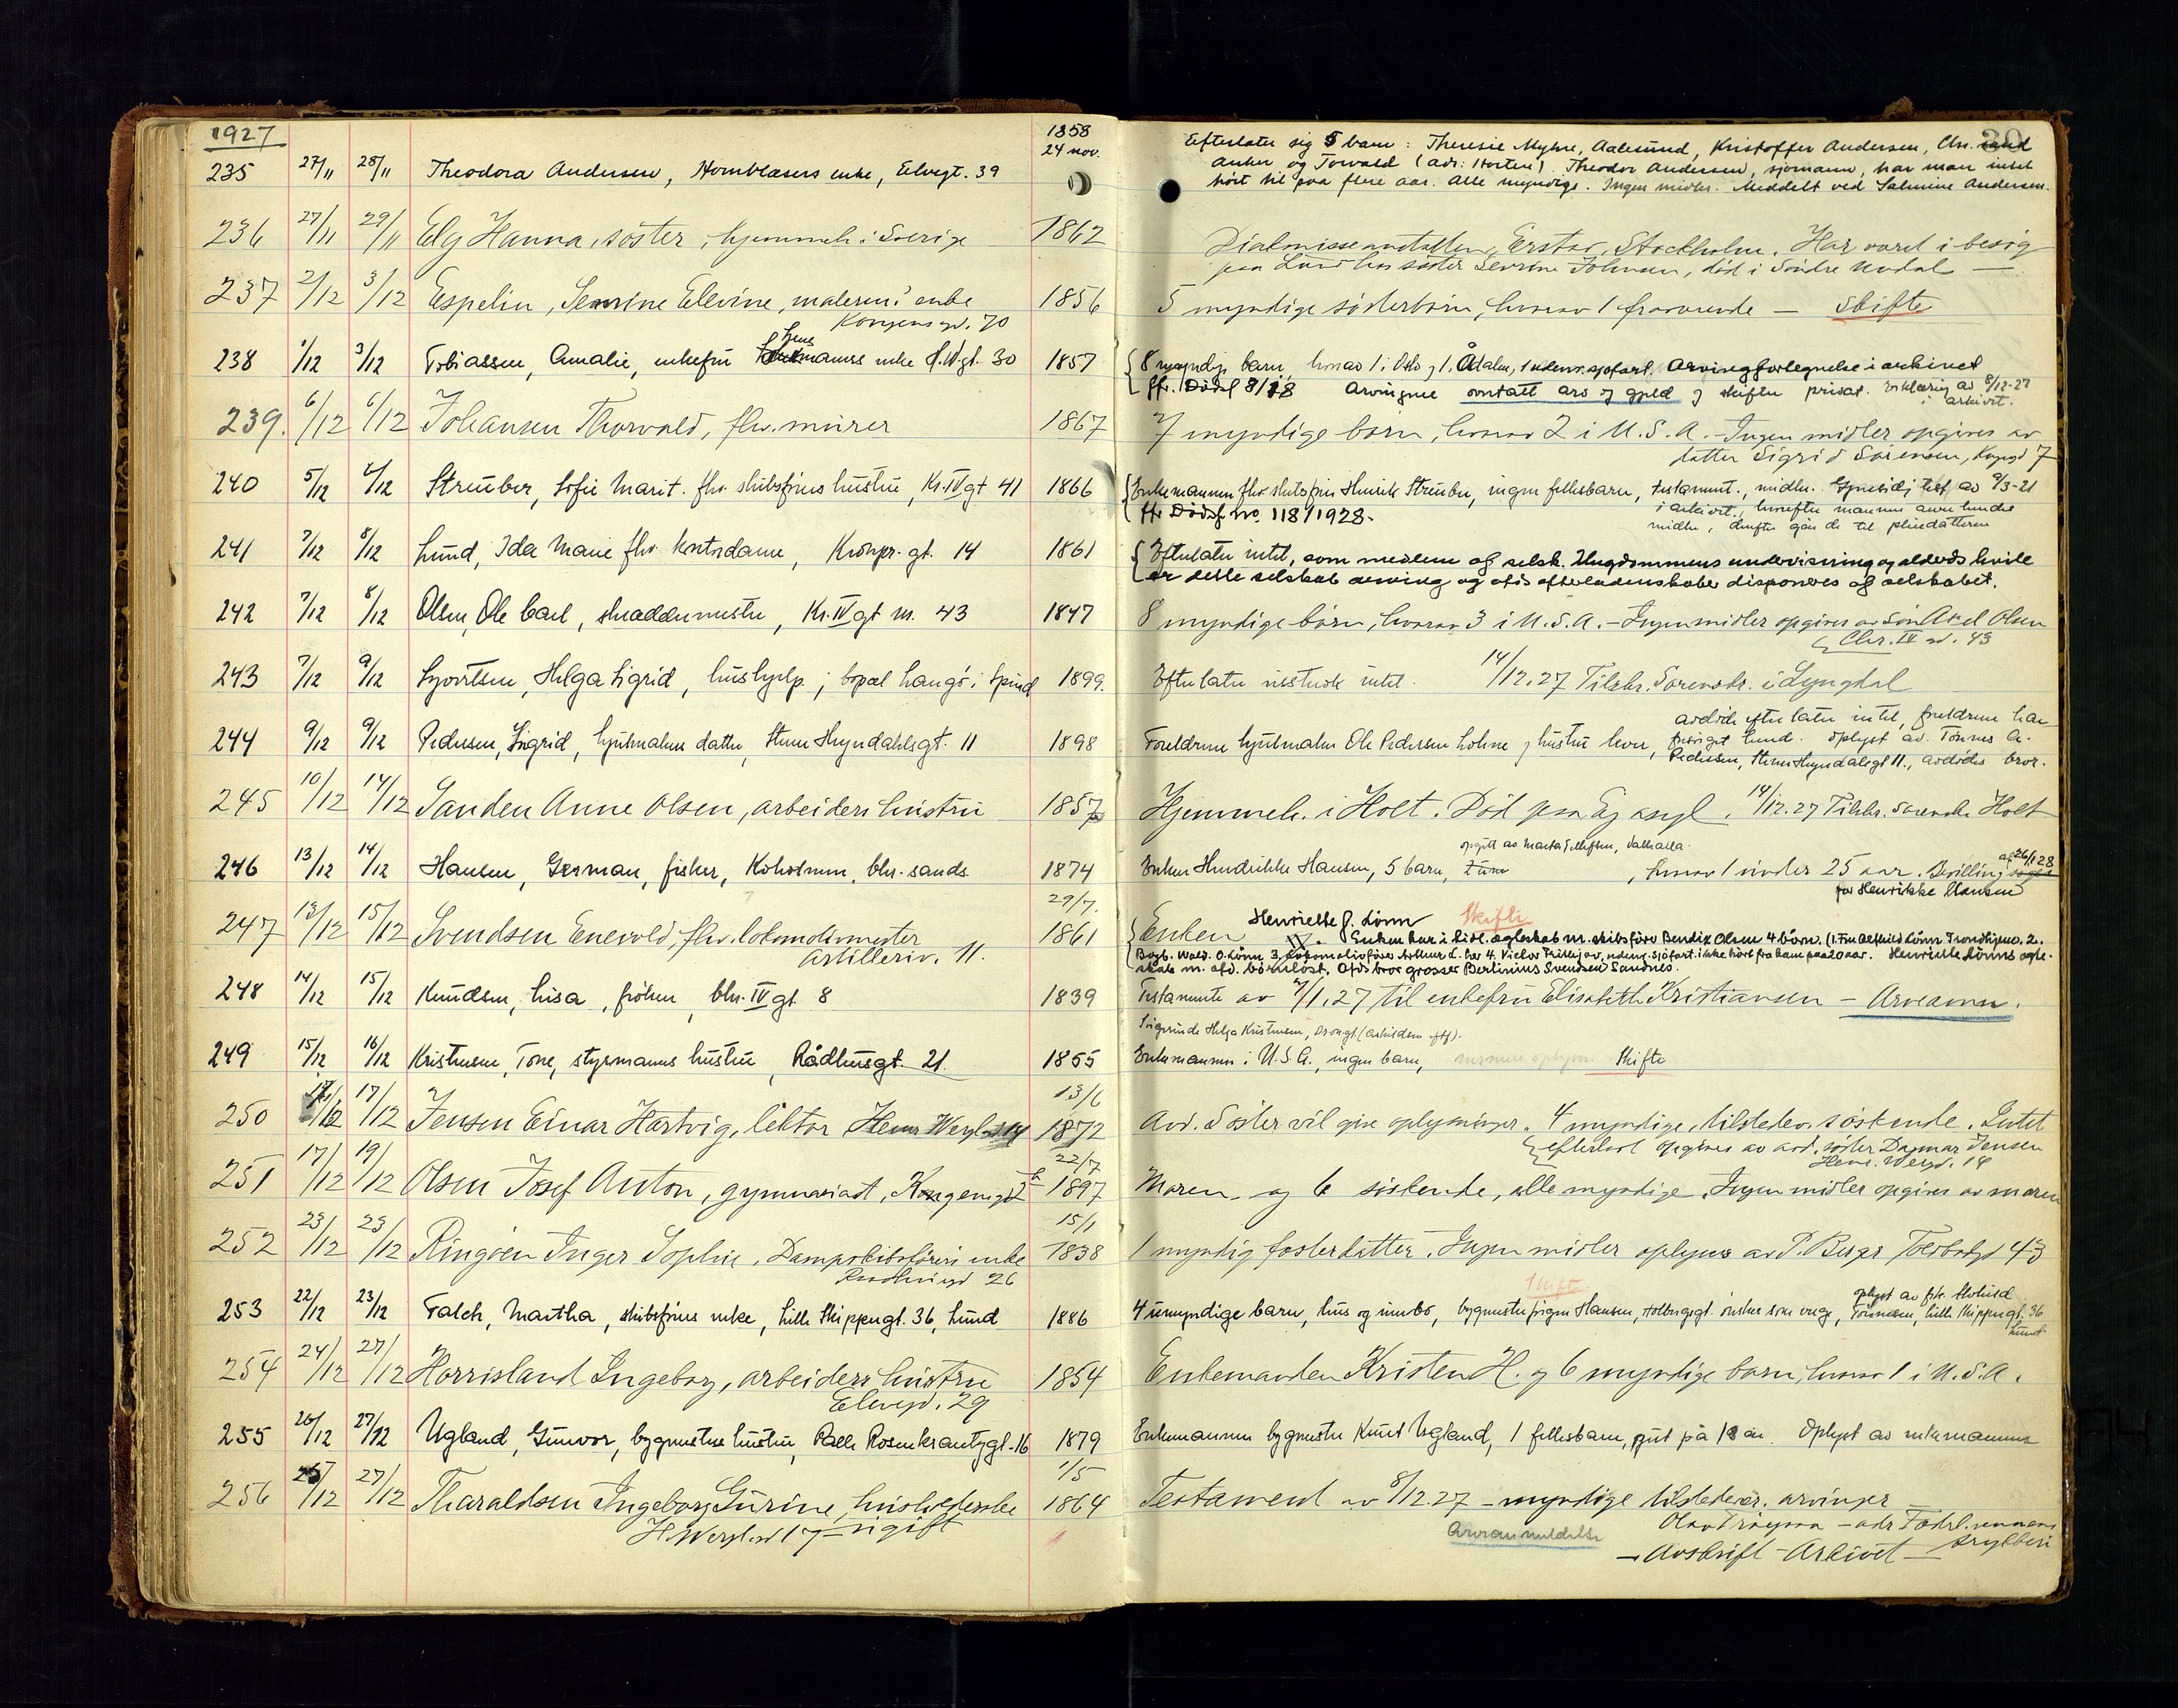 1927
1858
24 nov.
235 27/11 28/11 Theodora Andersen, Hornblæsers enke, Elvegt. 39
Efterlater sig 5 barn: Theresie Myhre, Aalesund, Kristoffer Andersen, Chr.sand
Anker og Torvald (adr: Horten). Theodor Andersen, sjømann, har man intet
hört til paa flere aar. Alle myndige. Ingen midler. Meddelt ved Salmine Andersen.
236 27/11 29/11 Elg Hanna, söster, hjemmeh. i Sverige 1862
Diakonisseanstalten, Erstar, Stockholm. Har været i besög
paa Lund hos söster Severine Johnsen, död i Söndre Undal —
237 2/12 3/12 Espelin, Severine Elevine, malerm. enke 1856
Kongensgd. 70
5 myndige sösterbörn, hvorav 1 fraværende — Skifte
238 1/12 3/12 Tobiassen, Amalie, enkefru enke H.W.gt. 30 1857
8 myndige barn, hvorav 1 i Oslo og 1 i Ådalen, 1 udenr. sjøfart. Arvingfortegnelse i arkivet
ff. Dödsf 8/28 Arvingene overtatt arv og gjeld og skifter privat. Erklæring av 8/12-27
i arkivet.
239. 6/12 6/12 Johansen Thorvald, fhv. murer 1867
7 myndige barn, hvorav 2 i U.S.A. - Ingen midler opgives av
datter Sigrid Sörensen, Kongsgd 7
240 5/12 6/12 Streuber, Sofie Marit. fhv. skibsförers hustru, Kr. IV gt 41 1866
Enkemannen fhv. skibsförer Henrik Streuber, ingen fellesbarn, testament., midler. Gjensidig test av 9/3-21
i arkivet, hvorefter mannen arver hendes
midler, derefter går de til pleiedatteren
ff. Dödsf no. 118/1928.
241 7/12 8/12 Lund, Ida Marie fhv. kontordame, Kronpr. gt. 14 1861
Efterlater intet, som medlem af selsk. Ungdommens undervisning og alders hvile
er dette selskab arving og afds efterladenskaber disponeres af selskabet.
242 7/12 8/12 Olsen, Ole Carl, skræddermester, Kr. IV gt nr. 43 1847
8 myndige börn, hvorav 3 i U.S.A. - Ingen midler opgives av sön Axel Olsen
Chr. IV gd. 43
243 7/12 9/12 Syvertsen, Helga Sigrid, hushjelp; bopæl Langö i Spind 1899.
Efterlater visstnok intet. 14/12.27 Tilskr. Sorenskr. i Lyngdal
244 9/12 9/12 Pedersen, Sigrid, hjulmakers datter, Stener Heyerdahlsgt. 11 1898
Foreldrene hjulmaker Ole Pedersen Lohne og hustru lever,
avdöde efterlater intet, foreldrene har
forsörget hende. Oplyst av Tönnes A.
Pedersen, Stener Heyerdalsgt 11., avdödes bror.
245 10/12 14/12 Sanden Anne Olsen, arbeiders hustru 1857
Hjemmeh. i Holt. Död paa Eg asyl. 14/12.27 Tilskr. Sorenskr. Holt
246 13/12 14/12 Hansen, German, fisker, Koholmen, Chr.sands 1874
opgitt av Marta Tellefsen, Valhalla.
Enken Hendrikke Hansen, 5 barn, , hvorav 1 under 25 aar. Bevilling af 26/1 28
for Henrikke Hansen
247 13/12 15/12 Svendsen Enevold, fhv. lokomotivmester 29/7. 1861
Artilleriv. 11.
Enken Henriette J. Lönn Skifte
Enken har i tidl. ægteskab m. skibsförer Bendix Olsen 4 börn. (1. Fru Alfhild Lönn Trondhjem. 2.
Bogb. Wald. O. Lönn 3. Lokomotivförer Arthur L. her 4. Victor Fritjov, udenr. sjöfart. ikke hört fra ham paa 20 aar. Henriette Lönns ægte-
skab m. afd. barnlöst. Afds bror grosser Berlinius Svendsen Sandnes.
248 14/12 15/12 Knudsen, Lisa, fröken, Chr. IV gt. 8 1839
Testamente av 7/1.27 til enkefru Elisabeth Kristiansen — Arveanm.
249 15/12 16/12 Kristensen, Tone, styrmanns hustru, Rådhusgt. 21. 1855
Svigerinde Helga Kristensen, Drongt. (Arkildsen eftf).
Enkemannen i U.S.A., ingen barn, nærmere oplysn. Skifte
250 17/12 17/12 Jensen Einar Hartvig, lektor Henr Wergl.gd 14 13/6 1872
Avd. Söster vil give oplysninger. 4 myndige, tilstedev. söskende. Intet
efterladt opgives av avd. söster Dagmar Jensen
Henr. Wergd. 14
251 17/12 19/12 Olsen Josef Anton, gymnasiast, Kongensgd 22/7 1897
Moren og 6 söskende, alle myndige. Ingen midler opgives av moren
252 23/12 23/12 Ringöen Inger Sophie, Dampskibsförers enke 15/1 1838
Raadhusgd 26
1 myndig fosterdatter. Ingen midler oplyses av P. Berge Toldbodgd 43
253 22/12 23/12 Falch, Martha, skibsförers enke, Lille Skippergt. 36, Lund 1886
Skifte
4 umyndige barn, hus og innbo, bygmester Jörgen Hansen, Holbergsgt. önskes som verge,
oplyst av frk.
Tönnesen, Lille Skippergt. 36
Lund
254 24/12 27/12 Horrisland Ingeborg, arbeiders hustru 1854
Elvegd. 29
Enkemanden Kristen H. og 6 myndige barn, hvorav 1 i U.S.A.
255 26/12 27/12 Ugland, Gunvor, bygmesters hustru, Palle Rosenkrantzgt. 16 1879
Enkemannen bygmester Knut Ugland, 1 fellesbarn, gut på 18 år. Oplyst av enkemannen
256 25/12 27/12 Tharaldsen Ingeborg Gurine, husholderske 1/5 1864
H. Wergl.gd 17 — ugift
Testament av 8/12.27 — myndige tilstedevær. arvinger
Olav Trÿgsta — adr Fædrel.vennens
trykkeri
Arveanmeldelse
— Avskrift - Arkivet —